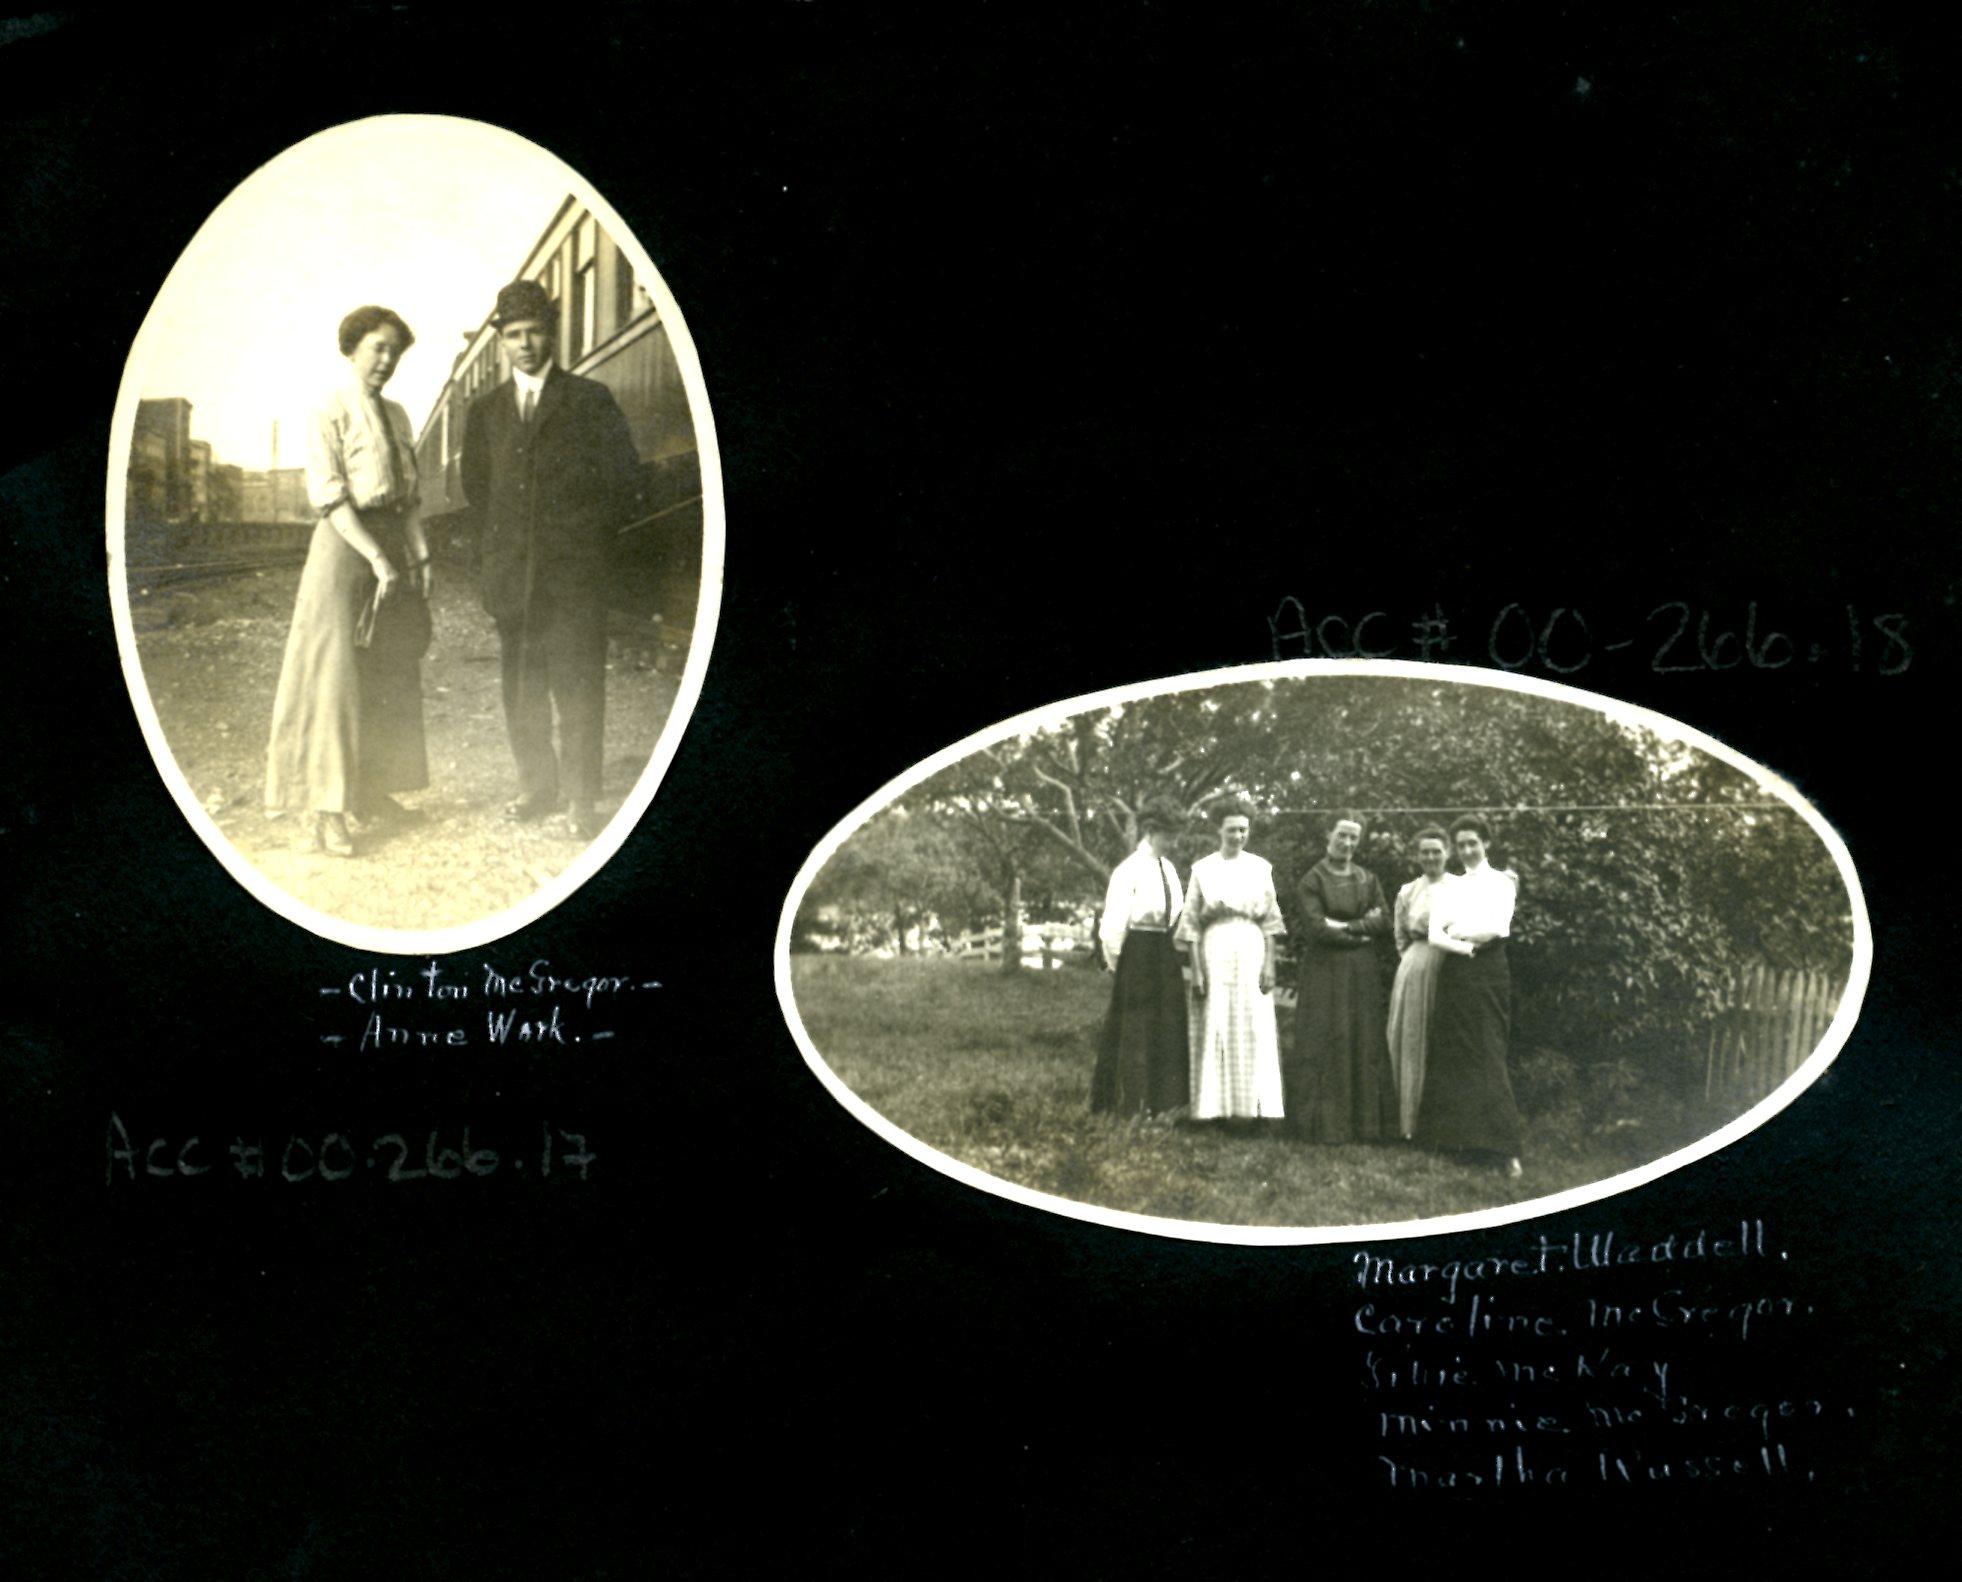 - Clinton McGregor. -
- Anne Work. -
Acc # 00-266.17
Acc # 00-266.18
Margaret. Waddell.
Caroline. McGregor.
McKay
Minnie. McGregor.
Martha Russell.